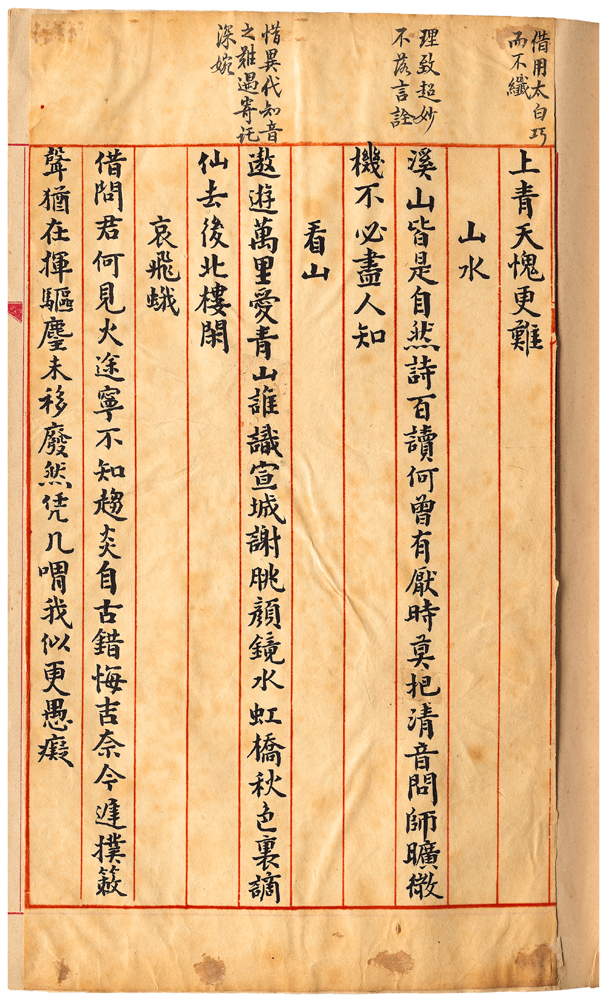 借用太白巧
而不纖
理致超妙
不落言詮
惜異代知音
之難遇寄託
深婉
上青天愧更難
山水
溪山皆是自然詩百讀何曾有厭時莫把清音問師曠微
機不必盡人知
看山
遨遊萬里愛青山誰識宣城謝眺顏鏡水虹橋秋色裏謫
仙去後北樓閑
哀飛蛾
借問君何見火途寧不知趨炎自古錯悔吉奈今遲撲簌
聲猶在揮驅麈未移廢然凭几喟我似更愚癡